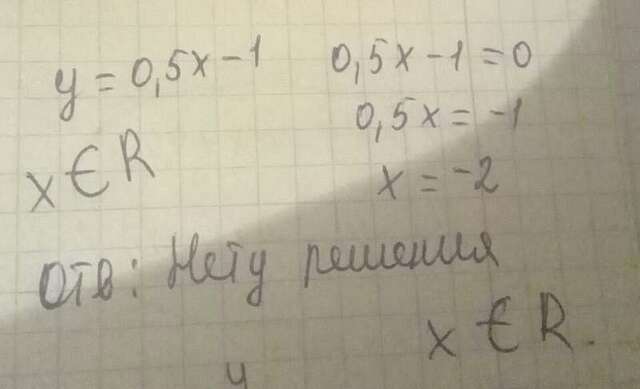 y = 0,5x - 1
x ∈ R
0,5x - 1 = 0
0,5x = -1
x = -2
Отв: Нету решения
x ∈ R.
y